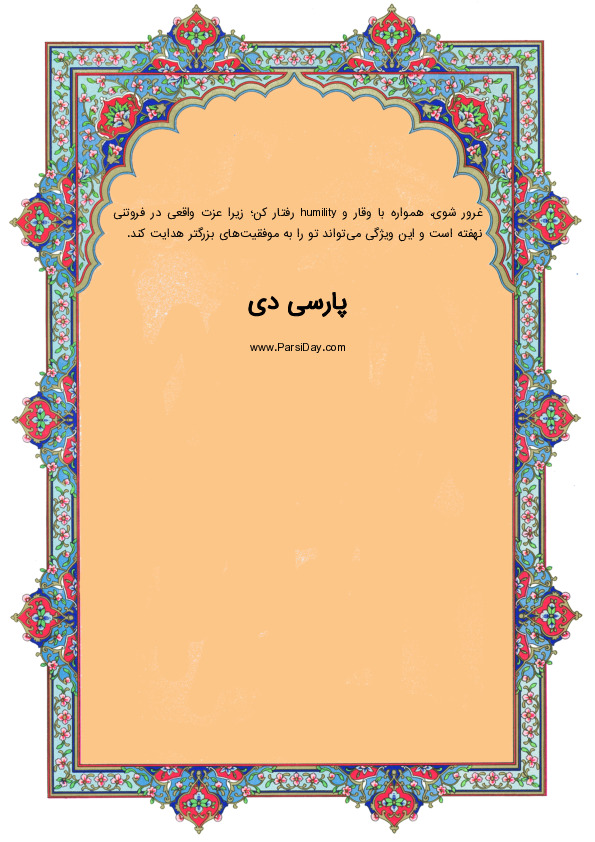 غرور شوی، همواره با وقار و humility رفتار کن؛ زیرا عزت واقعی در فروتنی
نهفته است و این ویژگی می‌تواند تو را به موفقیت‌های بزرگتر هدایت کند.
پارسی دی
www.ParsiDay.com